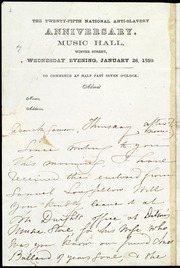 THE TWENTY-FIFTH NATIONAL ANTI-SLAVERY
ANNIVERSARY.
MUSIC HALL,
WINTER STREET,
WEDNESDAY EVENING, JANUARY 26, 1859.
TO COMMENCE AT HALF PAST SEVEN O'CLOCK.
Admit
From
Address
Thursday afternoon
Since writing to you
this morning I have
received the enclosed from
Samuel Longfellow Will
you kindly leave it at
Mr Dwight's office at
Music Store, for his Wife who
was you know our friend Miss
Bullard of years gone, & the